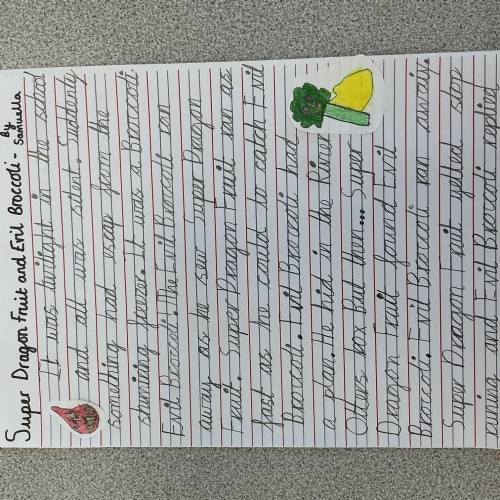 Super Dragon Fruit and Evil Broccoli - by Samuella
It was twilight in the school
and all was silent. Suddenly
something had escap from the
standing freezer. It was a Broccoli
Evil Broccoli. The Evil Broccoli ran
away as he saw Super Dragon
Fruit. Super Dragon Fruit ran as
fast as he could to catch Evil
Broccoli. Evil Broccoli had
a plan. He hid in the
Others box But then... Super
Dragon Fruit found Evil
Broccoli. Evil Broccoli ran away.
Super Dragon Fruit yelled stop
and Evil Broccoli replied